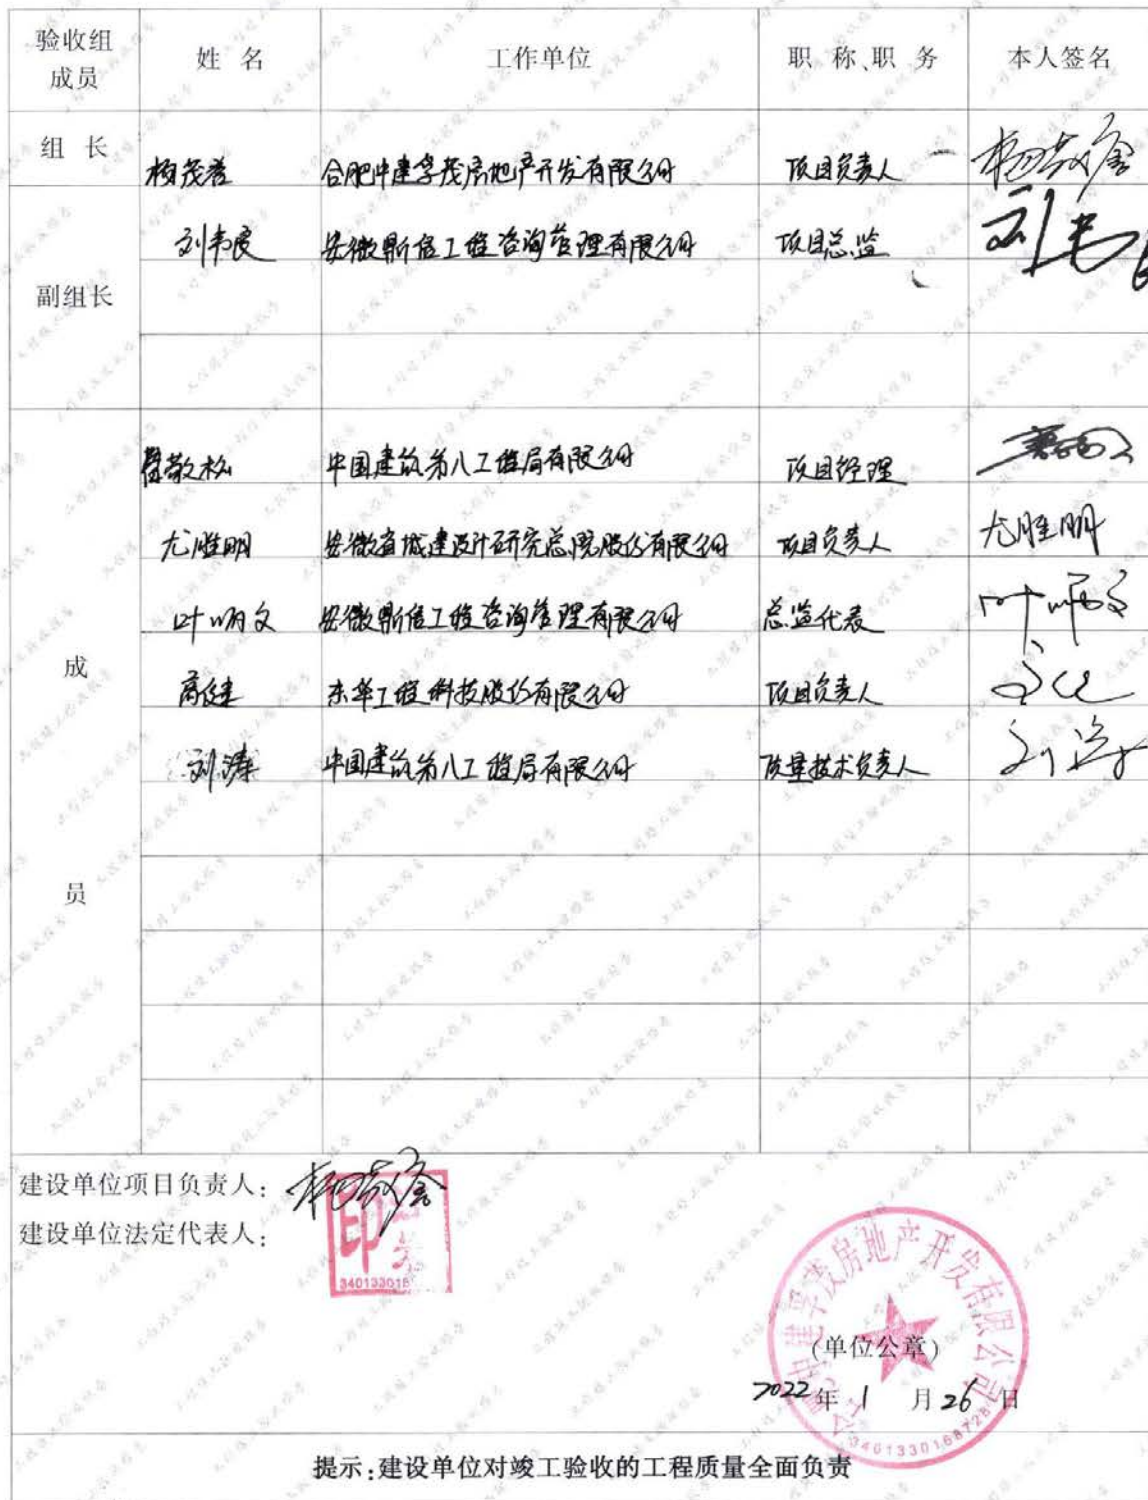 验收组成员 姓 名 工作单位 职 称、职 务 本人签名
组 长 合肥中建孚茂房地产开发有限公司 项目负责人
刘韦良 安徽鼎信工程咨询管理有限公司 项目总监 刘韦
副组长
中国建筑第八工程局有限公司 项目经理
尤胜明 安徽省城建设计研究总院股份有限公司 项目负责人 尤胜明
叶明文 安徽鼎信工程咨询管理有限公司 总监代表
高健 东华工程科技股份有限公司 项目负责人
刘涛 中国建筑第八工程局有限公司 质量技术负责人 刘涛
成
员
建设单位项目负责人：
建设单位法定代表人：
印
340133018
合肥中建孚茂房地产开发有限公司
(单位公章)
2022 年 1 月 26 日
提示：建设单位对竣工验收的工程质量全面负责